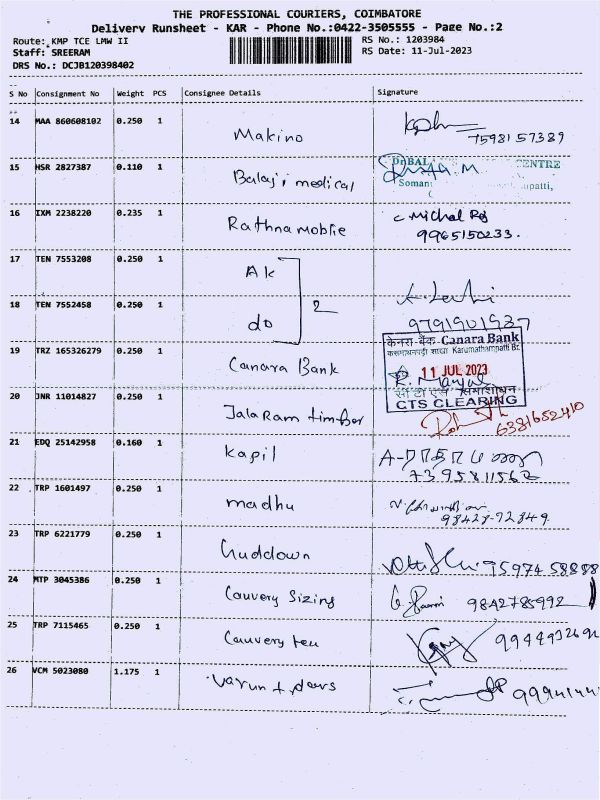 THE PROFESSIONAL COURIERS, COIMBATORE
Delivery Runsheet - KAR - Phone No.:0422-3505555 - Page No.:2
Route: KMP TCE LMW II RS No.: 1203984
Staff: SREERAM RS Date: 11-Jul-2023
DRS No.: DCJB120398402
S No Consignment No Weight PCS Consignee Details Signature
14 MAA 860608102 0.250 1 Makino 7598157389
15 HSR 2827387 0.110 1 Balaji medical
Dr BAL CENTRE
Soman upatti,
16 IXM 2238220 0.235 1 Rathna moblie C Michal Raj
9965150233.
17 TEN 7553208 0.250 1 Ak
2
18 TEN 7552458 0.250 1 do 9791901937
19 TRZ 165326279 0.250 1 Canara Bank
केनरा बैंक Canara Bank
Karumathampatti Br.
11 JUL 2023
CTS CLEARING
20 JNR 11014827 0.250 1 Jala Ram timber 6381652410
21 EDQ 25142958 0.160 1 Kapil
22 TRP 1601497 0.250 1 madhu 98428-72849
23 TRP 6221779 0.250 1 Guddown 75974 58888
24 MTP 3045386 0.250 1 Cauvery Sizing 9842785992
25 TRP 7115465 0.250 1 Cauvery tex
26 VCM 5023080 1.175 1 Varun